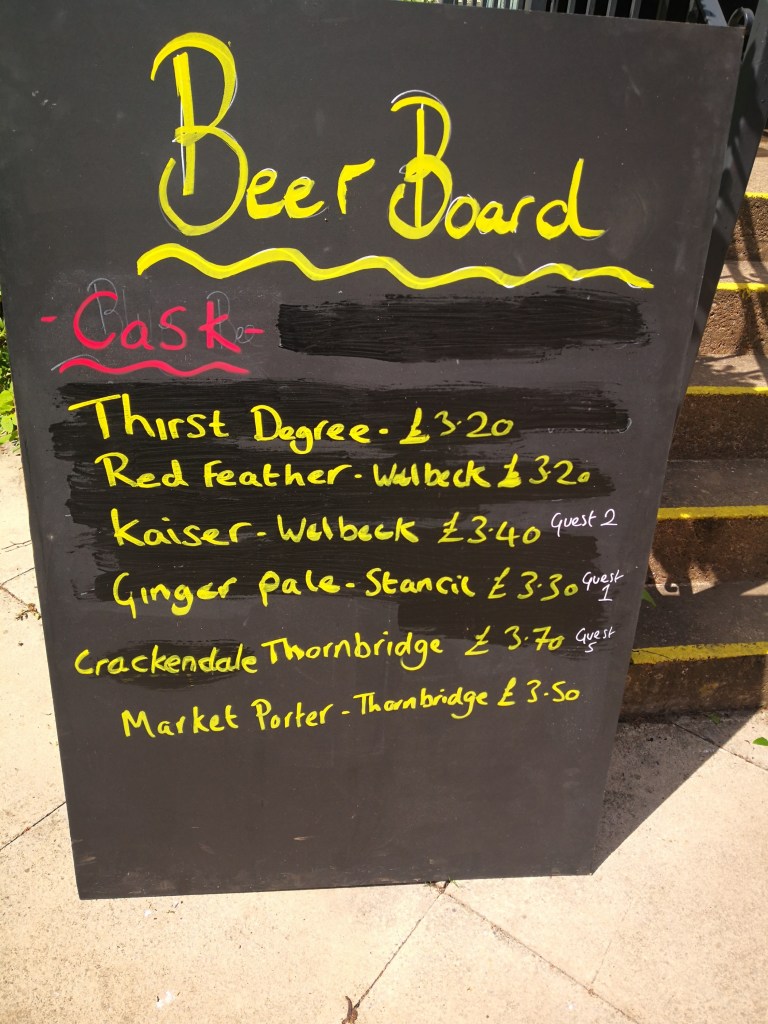 Beer Board
-Cask-
Thirst Degree - £3.20
Red Feather - Welbeck £3.20
Kaiser - Welbeck £3.40 Guest 2
Ginger Pale - Stancil £3.30 Guest 1
Crackendale Thornbridge £3.70 Guest 5
Market Porter - Thornbridge £3.50